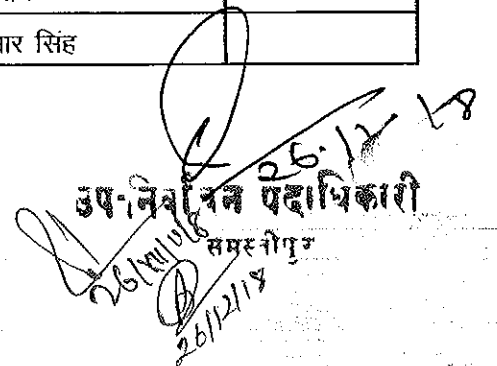 ार सिंह
26.12.18
उप-निर्वाचन पदाधिकारी
समस्तीपुर
26/XII/018
26/12/18